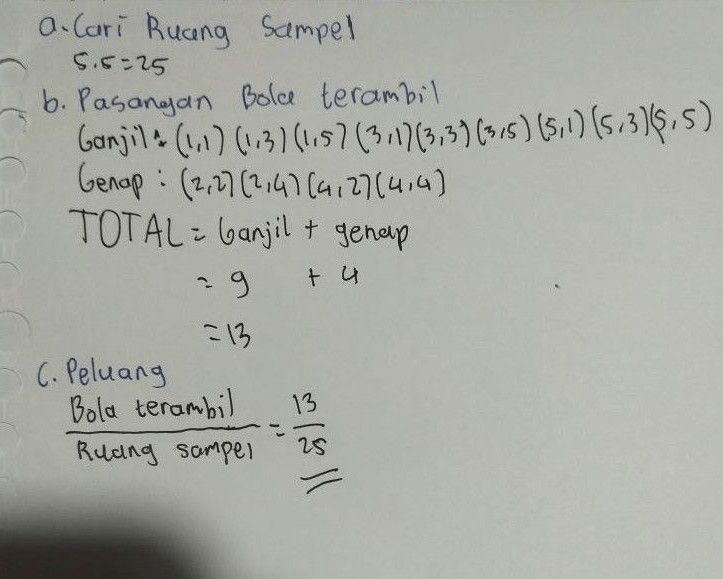 a. Cari Ruang Sampel
5.5=25
b. Pasangan Bola terambil
Ganjil : (1,1) (1,3) (1,5) (3,1) (3,3) (3,5) (5,1) (5,3) (5,5)
Genap : (2,2) (2,4) (4,2) (4,4)
TOTAL = Ganjil + genap
= 9 + 4
= 13
C. Peluang
Bola terambil = 13
Ruang sampel 25